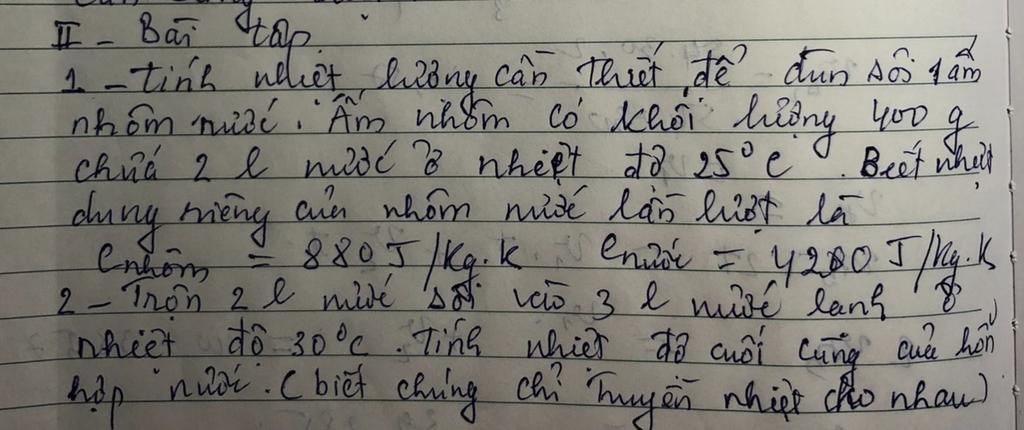 II - Bài tập.
1 - Tính nhiệt lượng cần thiết để đun sôi 1 ấm
nhôm nước. Ấm nhôm có khối lượng 400 g
chứa 2 l nước ở nhiệt độ 25°C. Biết nhiệt
dung riêng của nhôm nước lần lượt là
Cnhôm = 880 J/kg.K Cnước = 4200 J/kg.K
2 - Trộn 2 l nước sôi vào 3 l nước lạnh ở
nhiệt độ 30°C. Tính nhiệt độ cuối cùng của hỗn
hợp nước. (biết chúng chỉ truyền nhiệt cho nhau)